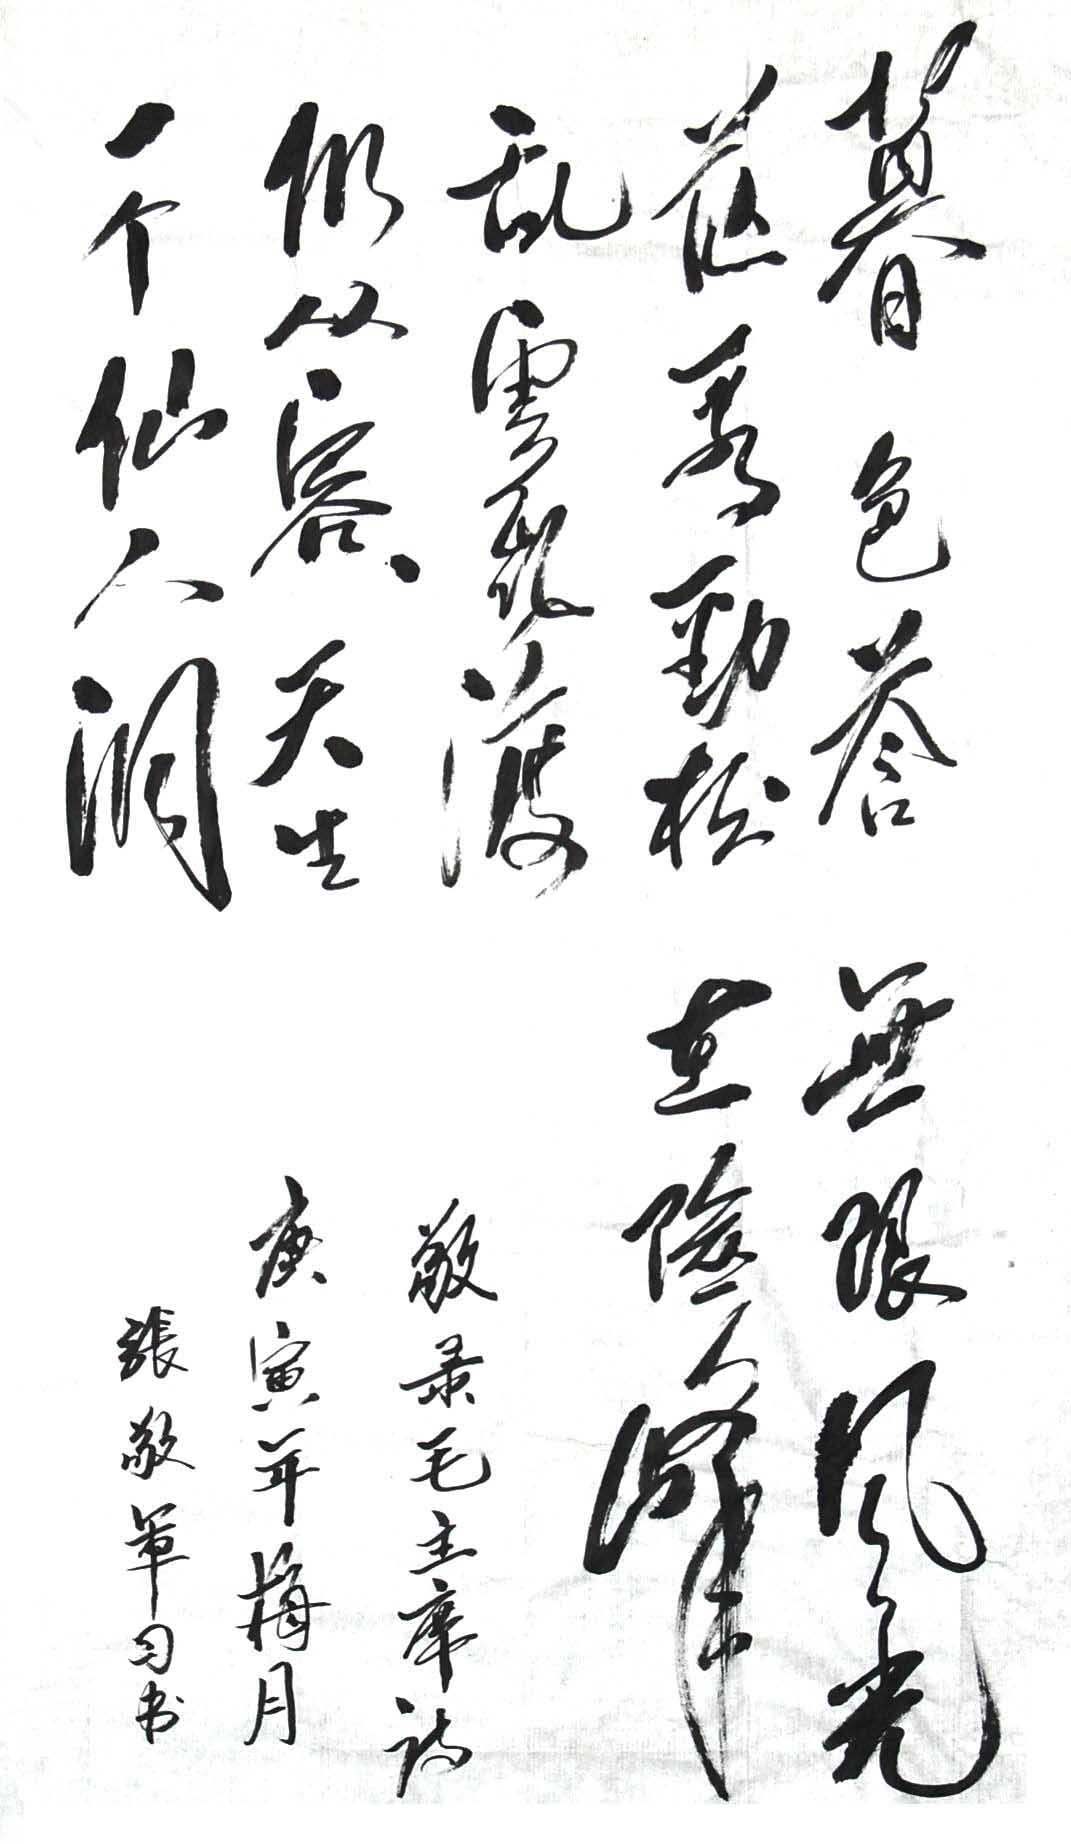 暮色苍
茫看劲松
乱雲飛渡
仍从容、天生
一个仙人洞
無限风光
在險峰
敬录毛主席诗
庚寅年梅月
張敬軍习书